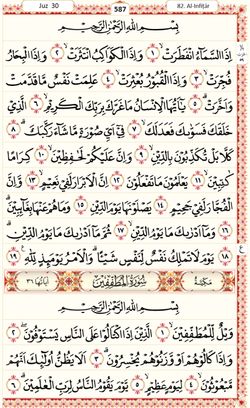 Juz 30 587 82. Al-Infiṭār
بِسْمِ اللَّهِ الرَّحْمَٰنِ الرَّحِيمِ
إِذَا السَّمَاءُ انْفَطَرَتْ ١ وَإِذَا الْكَوَاكِبُ انْتَثَرَتْ ٢ وَإِذَا الْبِحَارُ
فُجِّرَتْ ٣ وَإِذَا الْقُبُورُ بُعْثِرَتْ ٤ عَلِمَتْ نَفْسٌ مَّا قَدَّمَتْ
وَأَخَّرَتْ ٥ يَٰأَيُّهَا الْإِنْسَانُ مَا غَرَّكَ بِرَبِّكَ الْكَرِيمِ ٦ الَّذِي
خَلَقَكَ فَسَوّٰىكَ فَعَدَلَكَ ٧ فِي أَيِّ صُورَةٍ مَّا شَاءَ رَكَّبَكَ ٨
كَلَّا بَلْ تُكَذِّبُونَ بِالدِّينِ ٩ وَإِنَّ عَلَيْكُمْ لَحَٰفِظِينَ ١٠ كِرَامًا
كَٰتِبِينَ ١١ يَعْلَمُونَ مَا تَفْعَلُونَ ١٢ إِنَّ الْأَبْرَارَ لَفِي نَعِيمٍ ١٣ وَإِنَّ
الْفُجَّارَ لَفِي جَحِيمٍ ١٤ يَصْلَوْنَهَا يَوْمَ الدِّينِ ١٥ وَمَا هُمْ عَنْهَا بِغَائِبِينَ ١٦
وَمَا أَدْرٰىكَ مَا يَوْمُ الدِّينِ ١٧ ثُمَّ مَا أَدْرٰىكَ مَا يَوْمُ الدِّينِ ١٨
يَوْمَ لَا تَمْلِكُ نَفْسٌ لِّنَفْسٍ شَيْئًا وَالْأَمْرُ يَوْمَئِذٍ لِّلَّهِ ١٩
مَكِّيَّةٌ سُورَةُ الْمُطَفِّفِينَ آيَاتُهَا ٣٦
بِسْمِ اللَّهِ الرَّحْمَٰنِ الرَّحِيمِ
وَيْلٌ لِّلْمُطَفِّفِينَ ١ الَّذِينَ إِذَا اكْتَالُوا عَلَى النَّاسِ يَسْتَوْفُونَ ٢
وَإِذَا كَالُوهُمْ أَوْ وَزَنُوهُمْ يُخْسِرُونَ ٣ أَلَا يَظُنُّ أُولَٰئِكَ أَنَّهُمْ
مَّبْعُوثُونَ ٤ لِيَوْمٍ عَظِيمٍ ٥ يَوْمَ يَقُومُ النَّاسُ لِرَبِّ الْعَالَمِينَ ٦